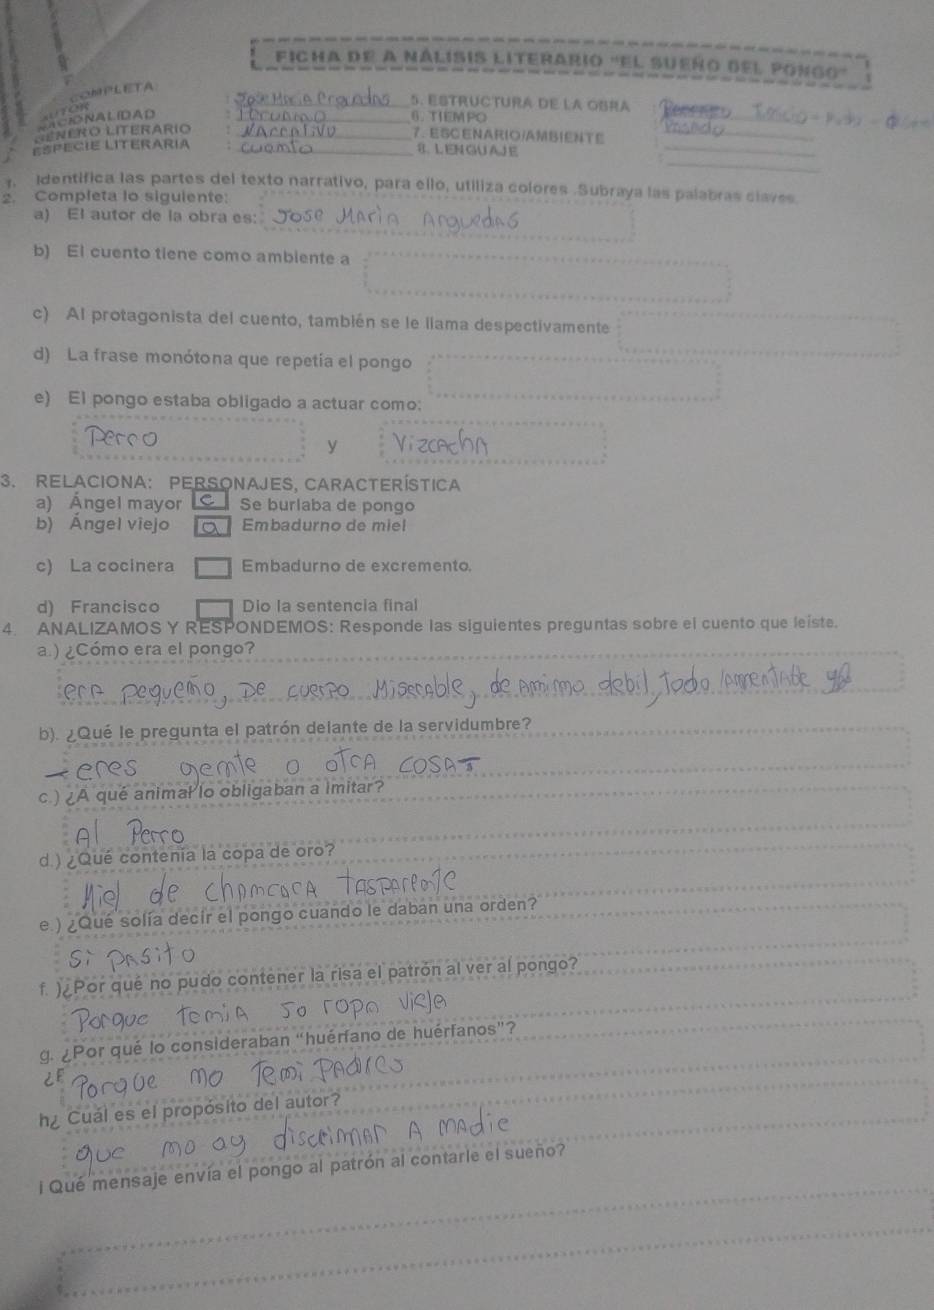 FICHA DE A NÁLISIS LITERARIO "EL SUEÑO DEL PONGO"
COMPLETA
AUTOR : Jose Maria
NACIONALIDAD : Peruano
GÉNERO LITERARIO : Narrativo
ESPECIE LITERARIA : cuento
5. ESTRUCTURA DE LA OBRA Inicio - nudo -
6. TIEMPO Pasado
7. ESCENARIO/AMBIENTE
8. LENGUAJE
1. Identifica las partes del texto narrativo, para ello, utiliza colores .Subraya las palabras claves.
2. Completa lo siguiente:
a) El autor de la obra es: Jose Maria Arguedas
b) El cuento tiene como ambiente a
c) Al protagonista del cuento, también se le llama despectivamente
d) La frase monótona que repetía el pongo
e) El pongo estaba obligado a actuar como:
Perro y Vizcacha
3. RELACIONA: PERSONAJES, CARACTERÍSTICA
a) Ángel mayor c Se burlaba de pongo
b) Ángel viejo a Embadurno de miel
c) La cocinera Embadurno de excremento.
d) Francisco Dio la sentencia final
4. ANALIZAMOS Y RESPONDEMOS: Responde las siguientes preguntas sobre el cuento que leíste.
a.) ¿Cómo era el pongo?
era pequeño, De cuerpo Miserable, de animo debil, todo lamentable
b). ¿Qué le pregunta el patrón delante de la servidumbre?
- eres gente o otra cosa
c.) ¿A qué animal lo obligaban a imitar?
Al Perro
d.) ¿Qué contenía la copa de oro?
Miel de chancaca trasparente
e.) ¿Qué solía decir el pongo cuando le daban una orden?
si pasito
f. )¿Por qué no pudo contener la risa el patrón al ver al pongo?
Porque temia so ropa vieja
g. ¿Por qué lo consideraban "huérfano de huérfanos"?
¿P Porque no Teni Padres
h¿ Cuál es el propósito del autor?
que no ay discrimar A nadie
i Qué mensaje envía el pongo al patrón al contarle el sueño?